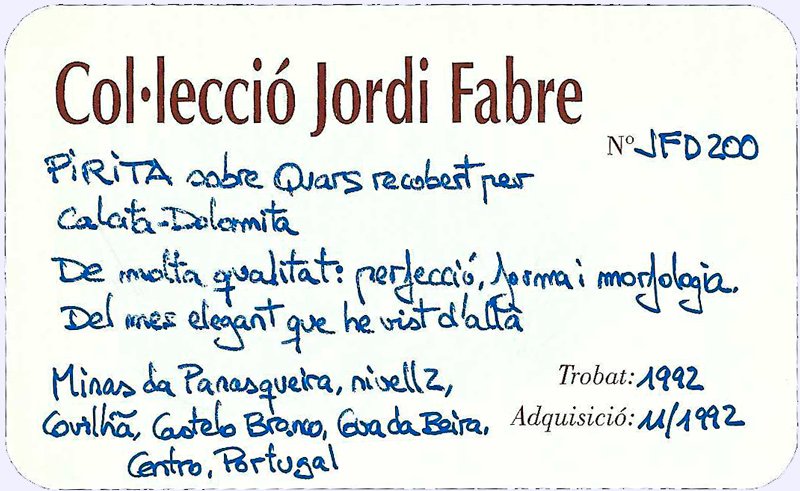 Col·lecció Jordi Fabre
Nº JFD200
PiRiTA sobre Quars recobert per
Calcita-Dolomita
De molta qualitat: perfecció, forma i morfologia.
Del mes elegant que he vist d'allà
Minas da Panasqueira, nivell 2,
Trobat: 1992
Covilhã, Castelo Branco, Cova da Beira,
Adquisició: 11/1992
Centro, Portugal